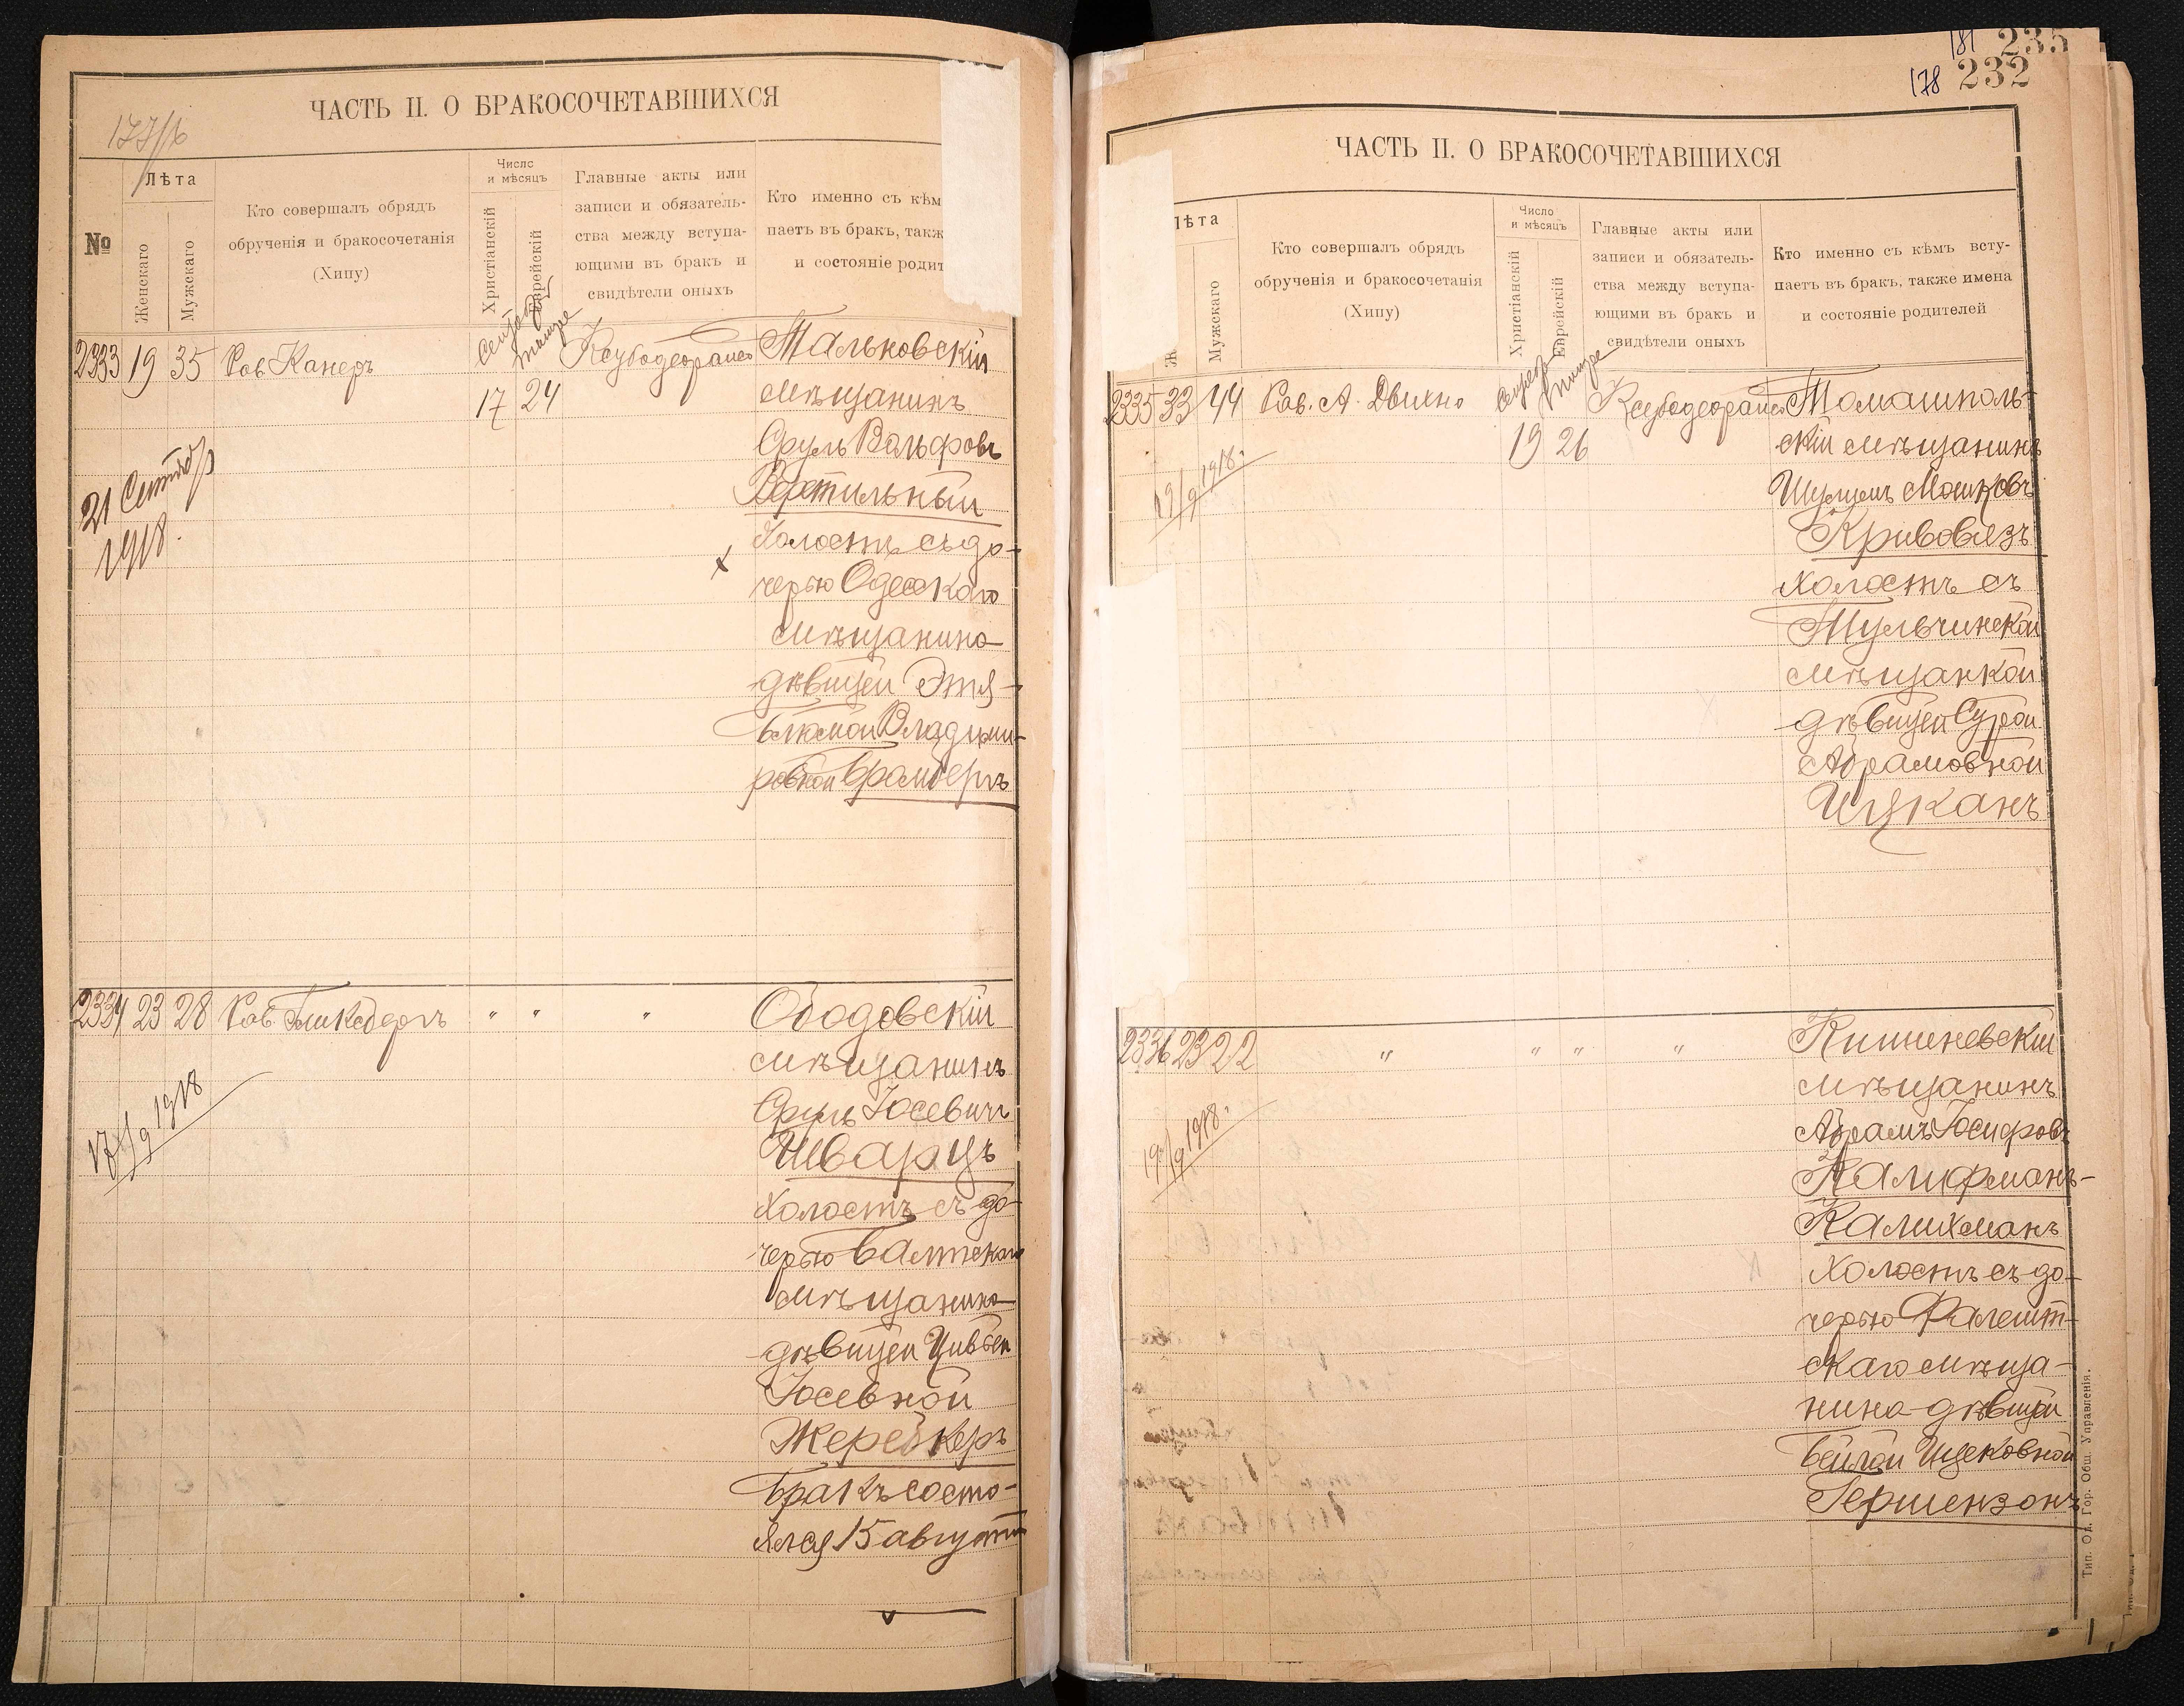 177/б
ЧАСТЬ II. О БРАКОСОЧЕТАВШИХСЯ
№
Лѣта
Женскаго
Мужскаго
Кто совершалъ обрядъ
обрученія и бракосочетанія
(Хипу)
Число
и мѣсяцъ
Христіанскій
Еврейскій
Главные акты или
записи и обязатель-
ства между вступа-
ющими въ бракъ и
свидѣтели оныхъ
Кто именно съ кѣм
паетъ въ бракъ, такж
и состояніе родит
2333 19 35 Рав. Канеръ
17 24
21 Сентябр
1918.
Тальковскій
мѣщанинъ
Сруль Вольфовъ
Вертильный
холостъ съ до-
черью Одесскаго
мѣщанина
дѣвицей Этя-
Блюмой Владими-
ровной Бромбергъ
2334 23 28 Рав. Гликсбергъ " " "
17/9 1918
Ободовскій
мѣщанинъ
Сруль Іосевичъ
Шварцъ
холостъ съ до-
черью Балтскаго
мѣщанина
дѣвицей Цивьей
Іосевной
Жеребкеръ
Бракъ состо-
ялся 15 августа
181 235
178 232
ЧАСТЬ II. О БРАКОСОЧЕТАВШИХСЯ
Лѣта
Мужскаго
Кто совершалъ обрядъ
обрученія и бракосочетанія
(Хипу)
Число
и мѣсяцъ
Христіанскій
Еврейскій
Главные акты или
записи и обязатель-
ства между вступа-
ющими въ бракъ и
свидѣтели оныхъ
Кто именно съ кѣмъ всту-
паетъ въ бракъ, также имена
и состояніе родителей
2335 33 44 Рав. А.
19 26
19/9 1918.
Томашполь-
скій мѣщанинъ
Шулимъ Мошковъ
Кривовязъ
холостъ съ
Тульчинской
мѣщанкой
дѣвицей Сурой
Абрамовной
Цуканъ
2336 23 22 " " " "
19/9 1918.
Кишиневскій
мѣщанинъ
Абрамъ Іосифовъ
Калифманъ-
Калихманъ
холостъ съ до-
черью Фалешт-
скаго мѣща-
нина дѣвицей
Бейлой Ицековной
Гершензонъ
Тип. Од. Гор. Общ. Управленія.